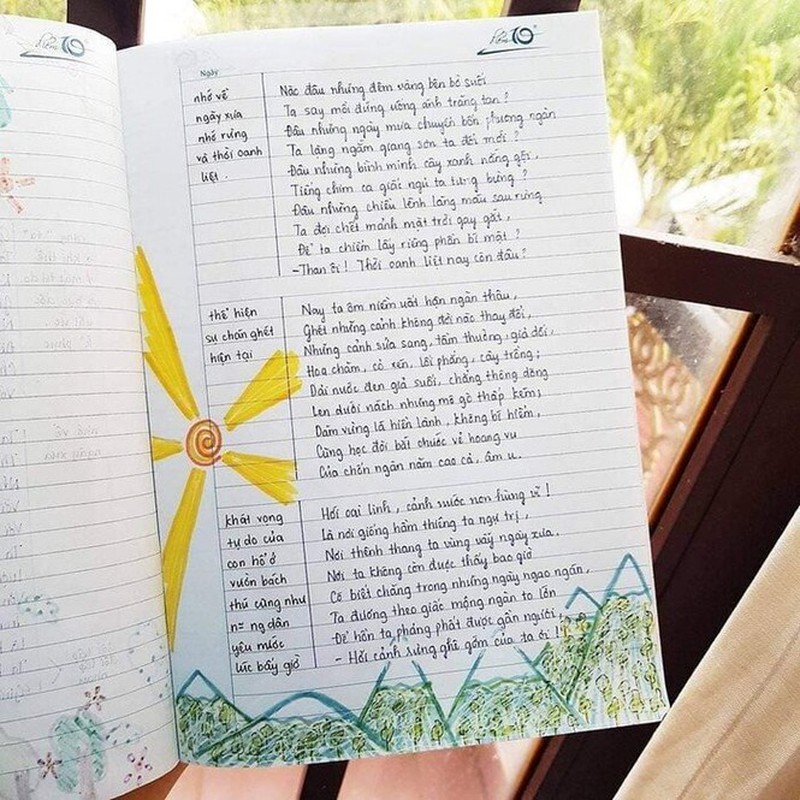 điểm 10
điểm 10
Ngày
nhớ về
ngày xưa
nhớ rừng
và thời oanh
liệt.
Nào đâu những đêm vàng bên bờ suối
Ta say mồi đứng uống ánh trăng tan?
Đâu những ngày mưa chuyển bốn phương ngàn
Ta lặng ngắm giang sơn ta đổi mới?
Đâu những bình minh cây xanh nắng gội,
Tiếng chim ca giấc ngủ ta tưng bừng?
Đâu những chiều lênh láng máu sau rừng
Ta đợi chết mảnh mặt trời gay gắt,
Để ta chiếm lấy riêng phần bí mật?
-Than ôi! Thời oanh liệt nay còn đâu?
thể hiện
sự chán ghét
hiện tại
Nay ta ôm niềm uất hận ngàn thâu,
Ghét những cảnh không đời nào thay đổi,
Những cảnh sửa sang, tầm thường, giả dối,
Hoa chăm, cỏ xén, lối phẳng, cây trồng;
Dải nước đen giả suối, chẳng thông dòng
Len dưới nách những mô gò thấp kém;
Dăm vừng lá hiền lành, không bí hiểm,
Cũng học đòi bắt chước vẻ hoang vu
Của chốn ngàn năm cao cả, âm u.
khát vọng
tự do của
con hổ ở
vườn bách
thú cũng như
n= ng dân
yêu nước
lúc bấy giờ
Hỡi oai linh, cảnh nước non hùng vĩ!
Là nơi giống hầm thiêng ta ngự trị,
Nơi thênh thang ta vùng vẫy ngày xưa,
Nơi ta không còn được thấy bao giờ
Có biết chăng trong những ngày ngao ngán,
Ta đương theo giấc mộng ngàn to lớn
Để hồn ta phảng phất được gần ngươi,
- Hỡi cảnh rừng ghê gớm của ta ơi!